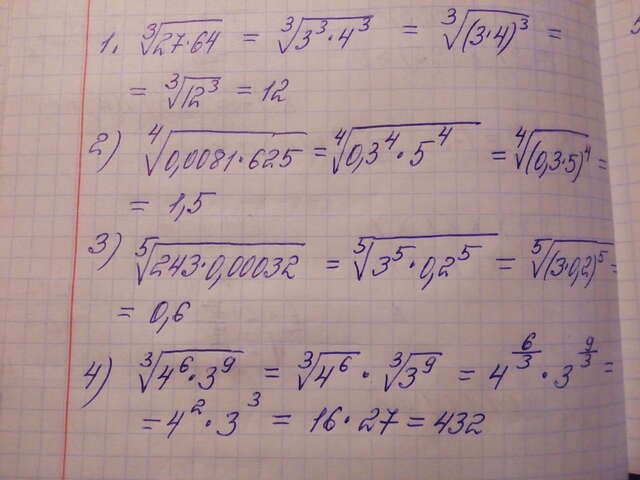 1. ∛(27·64) = ∛(3³·4³) = ∛((3·4)³) =
= ∛(12³) = 12
2) ⁴√(0,0081·625) = ⁴√(0,3⁴·5⁴) = ⁴√((0,3·5)⁴) =
= 1,5
3) ⁵√(243·0,00032) = ⁵√(3⁵·0,2⁵) = ⁵√((3·0,2)⁵) =
= 0,6
4) ∛(4⁶·3⁹) = ∛(4⁶) · ∛(3⁹) = 4^(6/3) · 3^(9/3) =
= 4² · 3³ = 16·27 = 432